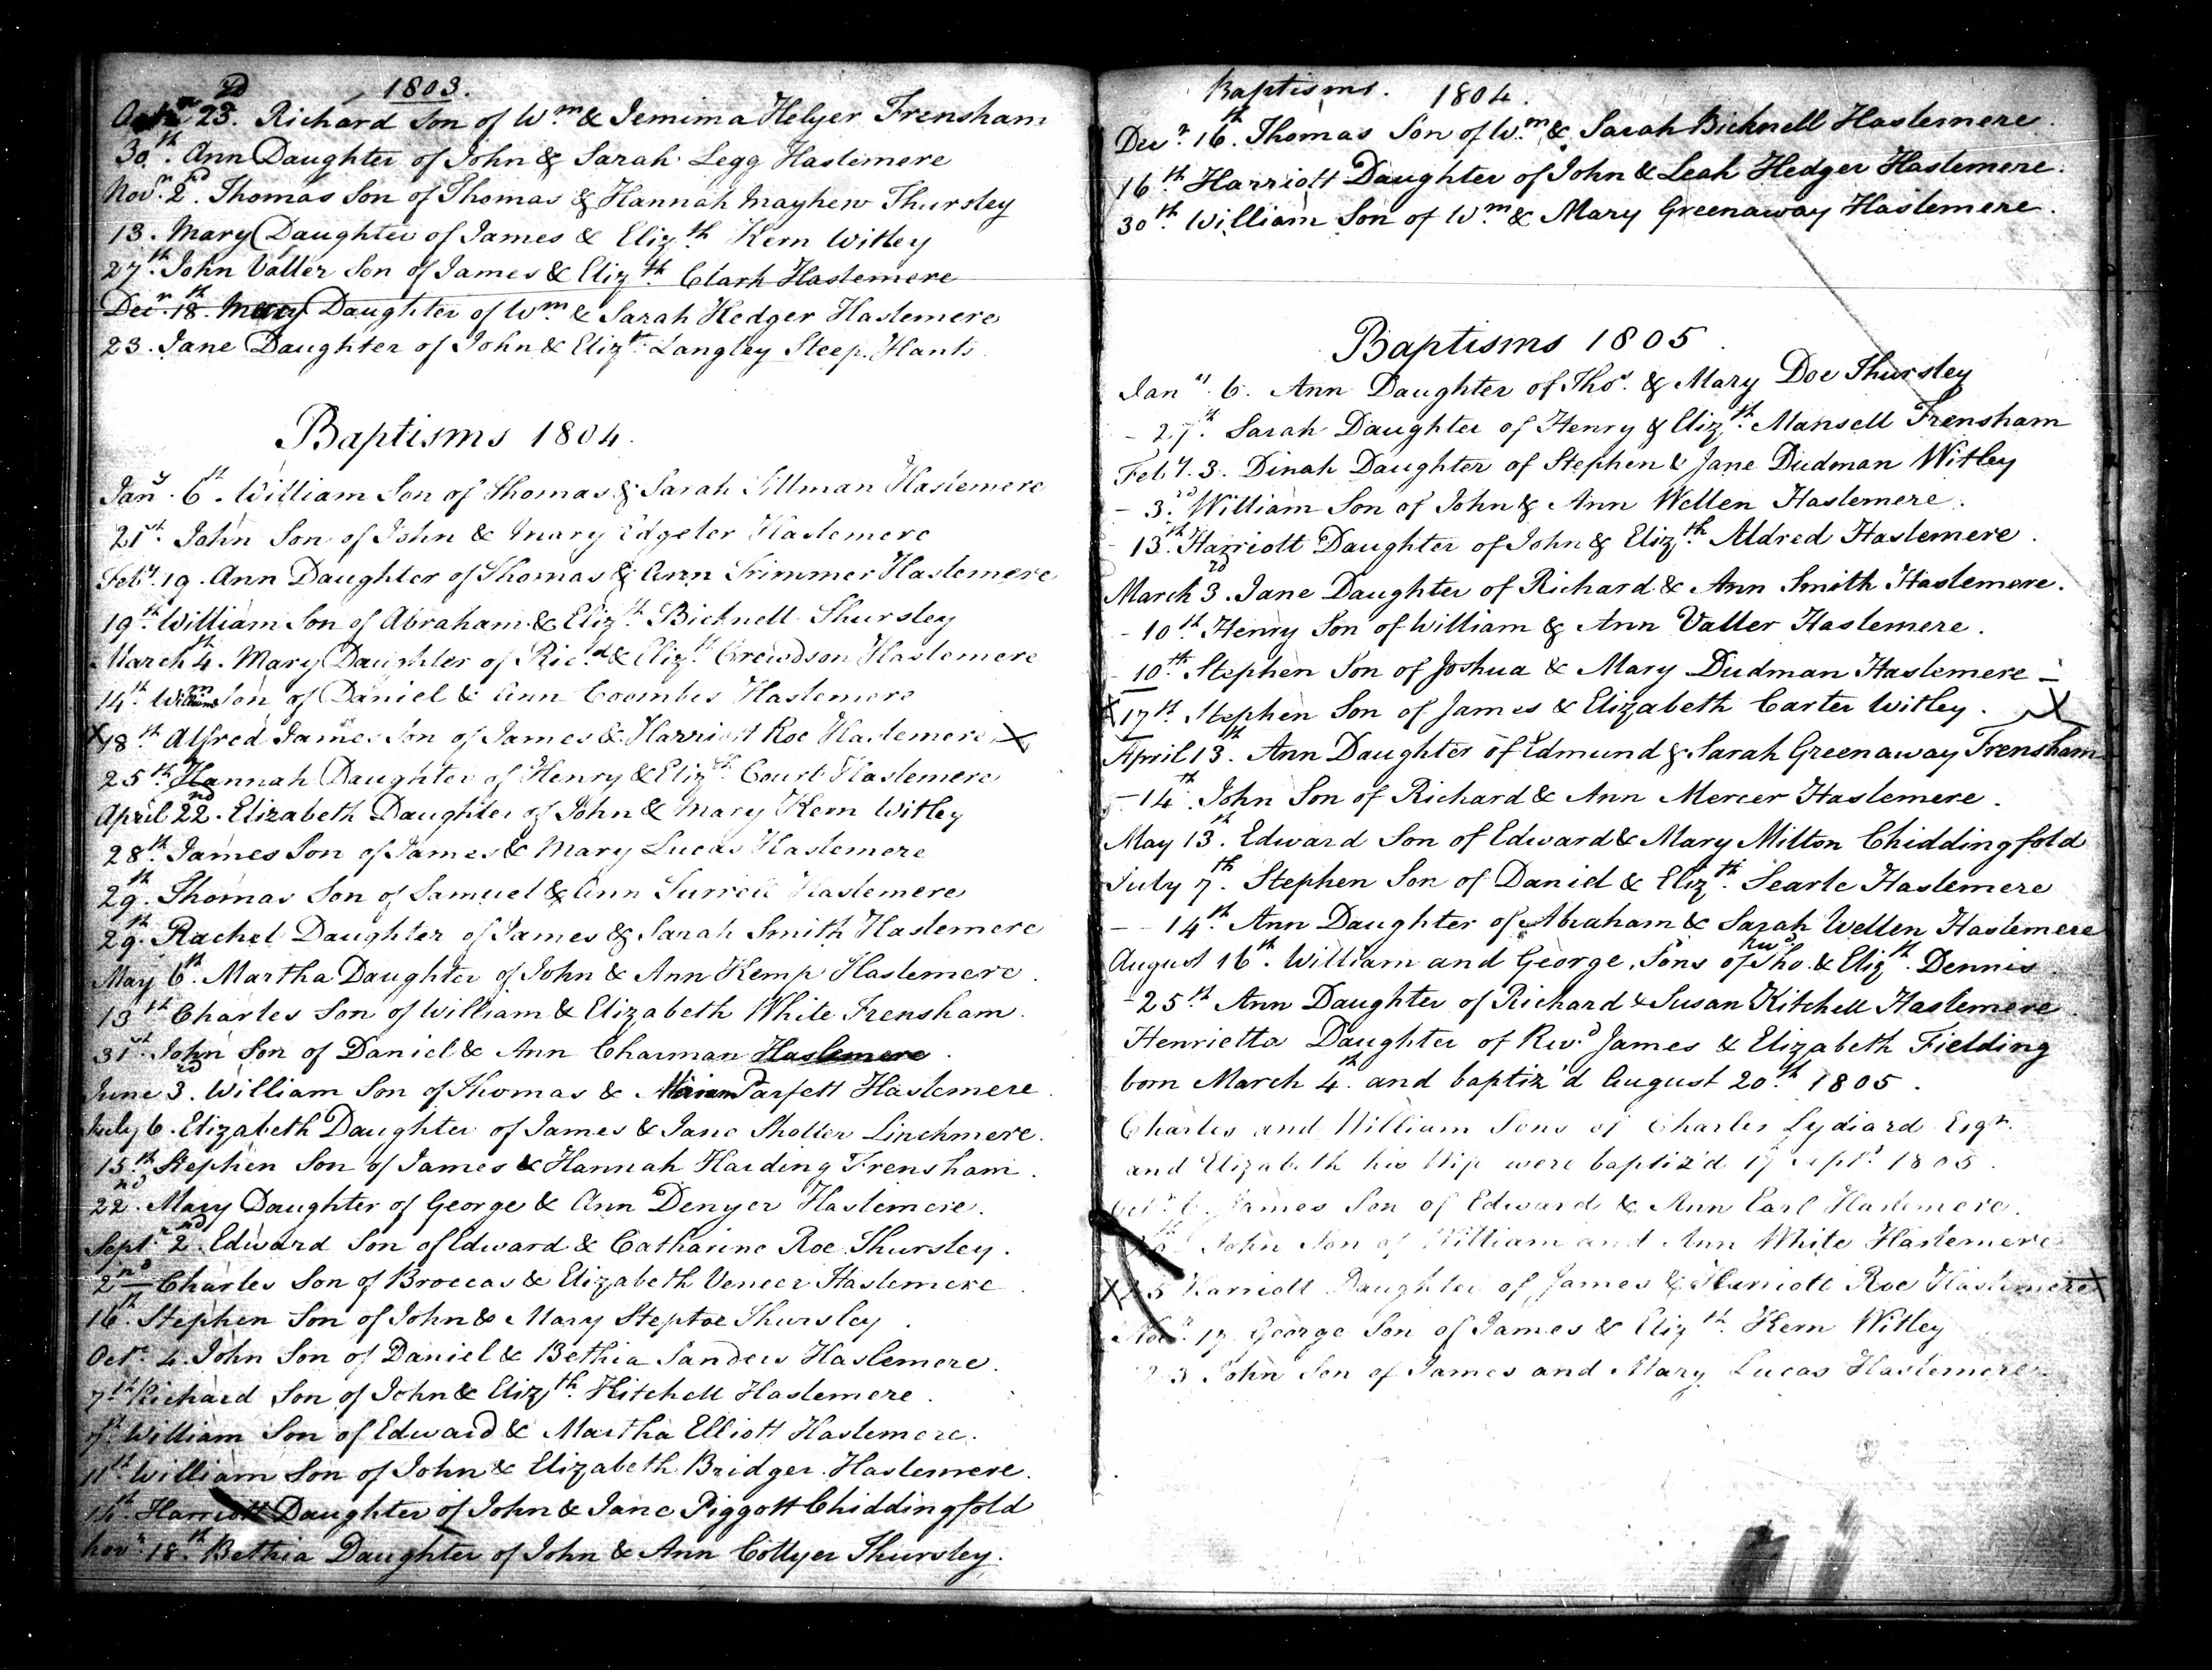 1803.
Octr 23rd. Richard Son of Wm & Jemima Helyer Frensham
30th. Ann Daughter of John & Sarah Legg Haslemere
Novr. 2nd. Thomas Son of Thomas & Hannah Mayhew Thursley
13. Mary Daughter of James & Elizth Kern Witley
27th. John Valler Son of James & Elizth. Clark Haslemere
Decr. 18th. Mary Daughter of Wm & Sarah Hedger Haslemere
23. Jane Daughter of John & Elizth Langley Steep. Hants
Baptisms 1804.
Jany. 6th. William Son of Thomas & Sarah Tillman Haslemere
21st. John Son of John & Mary Edgeler Haslemere
Feby. 19. Ann Daughter of Thomas & Ann Trimmer Haslemere
19th. William Son of Abraham & Elizth. Bicknell Thursley
March 4th. Mary Daughter of Ricd. & Elizth. Crewdson Haslemere
14th. William Son of Daniel & Ann Coombes Haslemere
X 18th. Alfred James Son of James & Harriott Roe Haslemere X
25th. Hannah Daughter of Henry & Elizth. Court Haslemere
April 22nd. Elizabeth Daughter of John & Mary Kern Witley
28th. James Son of James & Mary Lucas Haslemere
29th. Thomas Son of Samuel & Ann Haslemere
29th. Rachel Daughter of James & Sarah Smith Haslemere
May 6th. Martha Daughter of John & Ann Kemp Haslemere.
13th Charles Son of William & Elizabeth White Frensham.
31st. John Son of Daniel & Ann Charman Haslemere.
June 3rd. William Son of Thomas & Parfett Haslemere.
July 6. Elizabeth Daughter of James & Jane Shotter Linchmere.
15th. Stephen Son of James & Hannah Harding Frensham.
22nd. Mary Daughter of George & Ann Denyer Haslemere.
Septr. 2nd. Edward Son of Edward & Catharine Roe Thursley.
2nd Charles Son of Broccas & Elizabeth Veneer Haslemere.
16th. Stephen Son of John & Mary Steptoe Thursley.
Octr. 4. John Son of Daniel & Bethia Sanders Haslemere.
7th. Richard Son of John & Elizth Kitchell Haslemere.
7th. William Son of Edward & Martha Elliott Haslemere.
11th. William Son of John & Elizabeth Bridger Haslemere.
14th. Harriott Daughter of John & Jane Piggott Chiddingfold
Novr. 18th. Bethia Daughter of John & Ann Collyer Thursley.
Baptisms. 1804.
Decr. 16th. Thomas Son of Wm. & Sarah Bicknell Haslemere.
16th. Harriott Daughter of John & Leah Hedger Haslemere.
30th. William Son of Wm. & Mary Greenaway Haslemere.
Baptisms 1805.
Jany. 6. Ann Daughter of Thos. & Mary Doe Thursley
- 27th. Sarah Daughter of Henry & Elizth. Mansell Frensham
Feby. 3. Dinah Daughter of Stephen & Jane Dudman Witley
- 3rd. William Son of John & Ann Wellen Haslemere.
- 13th. Harriott Daughter of John & Elizth. Aldred Haslemere.
March 3rd. Jane Daughter of Richard & Ann Smith Haslemere.
- 10th. Henry Son of William & Ann Valler Haslemere.
- 10th. Stephen Son of Joshua & Mary Dudman Haslemere -
X 17th. Stephen Son of James & Elizabeth Carter Witley. X
April 13th. Ann Daughter of Edmund & Sarah Greenaway Frensham
- 14th. John Son of Richard & Ann Mercer Haslemere.
May 13th. Edward Son of Edward & Mary Milton Chiddingfold
July 7th. Stephen Son of Daniel & Elizth. Searle Haslemere
- - 14th. Ann Daughter of Abraham & Sarah Wellen Haslemere
August 16th. William and George, Sons of Revd Tho. & Elizth. Dennis
- 25th. Ann Daughter of Richard & Susan Kitchell Haslemere.
Henrietta Daughter of Revd. James & Elizabeth Fielding
born March 4th. and baptiz'd August 20th. 1805.
Charles and William Sons of Charles Lydiard Esqr.
and Elizabeth his Wife were baptiz'd 17 Septr. 1805.
Octr. 6. James Son of Edward & Ann Earl Haslemere.
John Son of William and Ann White Haslemere
X 25 Harriott Daughter of James & Harriott Roe Haslemere X
Novr. 17. George Son of James & Elizth. Kern Witley
23 John Son of James and Mary Lucas Haslemere